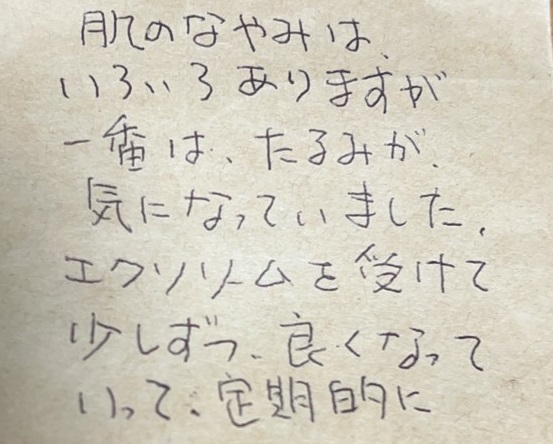 肌のなやみは、
いろいろありますが
一番は、たるみが、
気になっていました。
エクソソームを受けて
少しずつ、良くなって
いって、定期的に